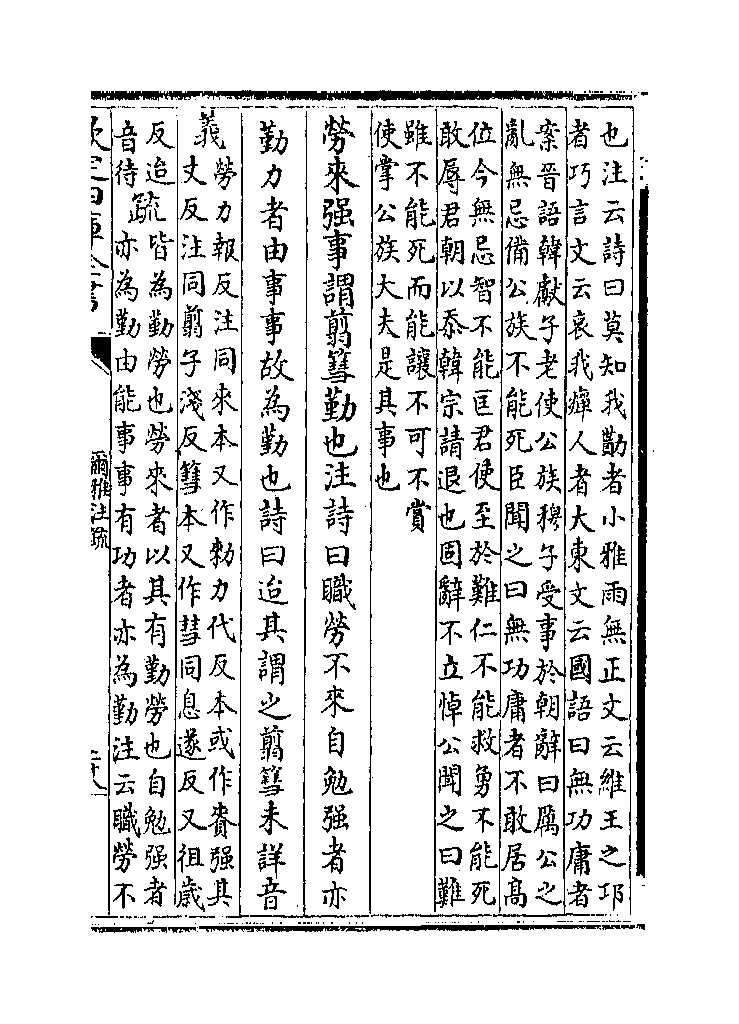 也注云詩曰莫知我勩者小雅雨無正文云維王之邛
者巧言文云哀我癉人者大東文云國語曰無功庸者
案晉語韓獻子老使公族穆子受事於朝辭曰厲公之
亂無忌備公族不能死臣聞之曰無功庸者不敢居高
位今無忌智不能匡君使至於難仁不能救勇不能死
敢辱君朝以忝韓宗請退也固辭不立悼公聞之曰難
雖不能死而能讓不可不賞
使掌公族大夫是其事也
勞來强事謂翦篲勤也注詩曰職勞不來自勉强者亦
勤力者由事事故為勤也詩曰迨其謂之翦篲未詳音
義
勞力報反注同來本又作勑力代反本或作賚强其
丈反注同翦子淺反篲本又作彗同息遂反又徂歲
反迨
音待
疏
皆為勤勞也勞來者以其有勤勞也自勉强者
亦為勤由能事事有功者亦為勤注云職勞不
欽定四庫全書
爾雅注疏
二十八